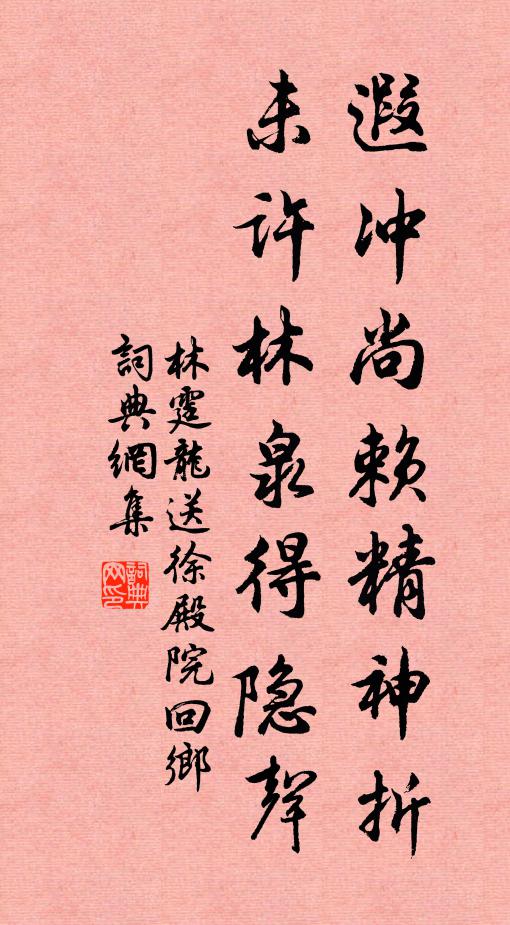 遐冲尚赖精神折
未许林泉得隐声
林霆龍送徐殿院回鄉
詞典網集
詞典网印